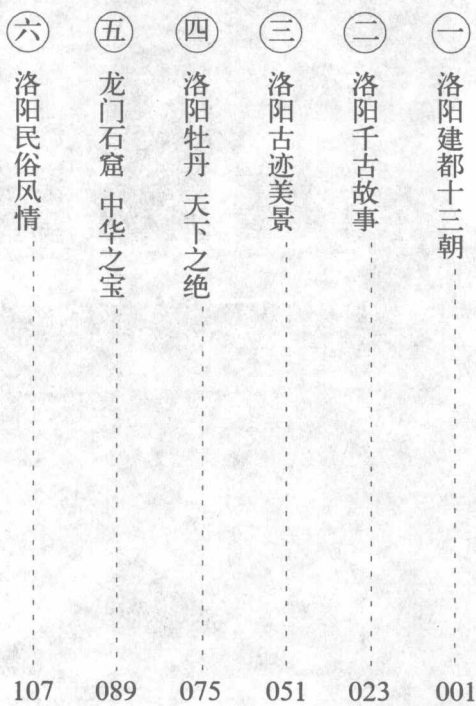 ㊀ 洛阳建都十三朝 001
㊁ 洛阳千古故事 023
㊂ 洛阳古迹美景 051
㊃ 洛阳牡丹 天下之绝 075
㊄ 龙门石窟 中华之宝 089
㊅ 洛阳民俗风情 107